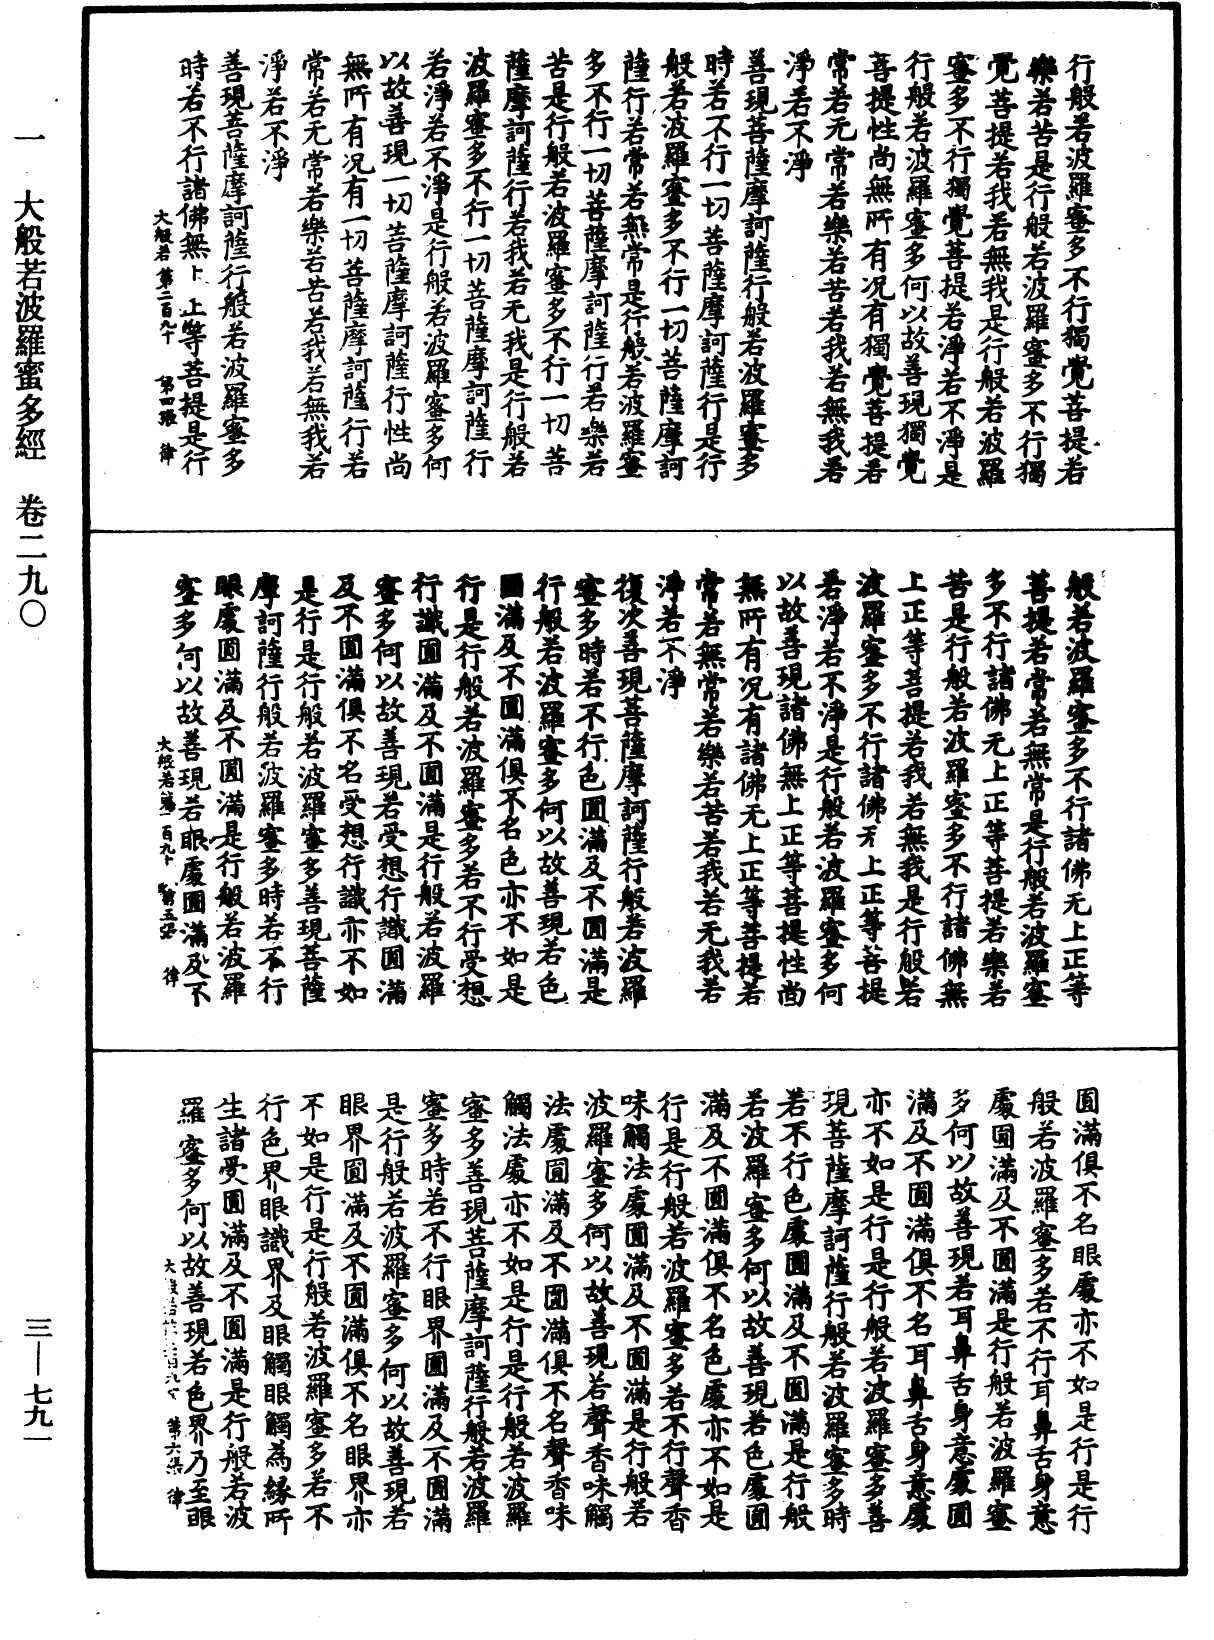 行般若波羅蜜多不行獨覺菩提若
樂若苦是行般若波羅蜜多不行獨
覺菩提若我若無我是行般若波羅
蜜多不行獨覺菩提若淨若不淨是
行般若波羅蜜多何以故善現獨覺
菩提性尚無所有况有獨覺菩提若
常若无常若樂若苦若我若無我若
淨若不淨
善現菩薩摩訶薩行般若波羅蜜多
時若不行一切菩薩摩訶薩行是行
般若波羅蜜多不行一切菩薩摩訶
薩行若常若無常是行般若波羅蜜
多不行一切菩薩摩訶薩行若樂若
苦是行般若波羅蜜多不行一切菩
薩摩訶薩行若我若无我是行般若
波羅蜜多不行一切菩薩摩訶薩行
若淨若不淨是行般若波羅蜜多何
以故善現一切菩薩摩訶薩行性尚
無所有况有一切菩薩摩訶薩行若
常若无常若樂若苦若我若無我若
淨若不淨
善現菩薩摩訶薩行般若波羅蜜多
時若不行諸佛無上 上等菩提是行
大般若第二百九十 第四張 律
般若波羅蜜多不行諸佛无上正等
菩提若常若無常是行般若波羅蜜
多不行諸佛无上正等菩提若樂若
苦是行般若波羅蜜多不行諸佛無
上正等菩提若我若無我是行般若
波羅蜜多不行諸佛无上正等菩提
若淨若不淨是行般若波羅蜜多何
以故善現諸佛無上正等菩提性尚
無所有况有諸佛无上正等菩提若
常若無常若樂若苦若我若无我若
淨若不淨
復次善現菩薩摩訶薩行般若波羅
蜜多時若不行色圓滿及不圓滿是
行般若波羅蜜多何以故善現若色
圓滿及不圓滿俱不名色亦不如是
行是行般若波羅蜜多若不行受想
行識圓滿及不圓滿是行般若波羅
蜜多何以故善現若受想行識圓滿
及不圓滿俱不名受想行識亦不如
是行是行般若波羅蜜多善現菩薩
摩訶薩行般若波羅蜜多時若不行
眼處圓滿及不圓滿是行般若波羅
蜜多何以故善現若眼處圓滿及不
大般若 百九十 第五 律
圓滿俱不名眼處亦不如是行是行
般若波羅蜜多若不行耳鼻舌身意
處圓滿及不圓滿是行般若波羅蜜
多何以故善現若耳鼻舌身意處圓
滿及不圓滿俱不名耳鼻舌身意處
亦不如是行是行般若波羅蜜多善
現菩薩摩訶薩行般若波羅蜜多時
若不行色處圓滿及不圓滿是行般
若波羅蜜多何以故善現若色處圓
滿及不圓滿俱不名色處亦不如是
行是行般若波羅蜜多若不行聲香
味觸法處圓滿及不圓滿是行般若
波羅蜜多何以故善現若聲香味觸
法處圓滿及不圓滿俱不名聲香味
觸法處亦不如是行是行般若波羅
蜜多善現菩薩摩訶薩行般若波羅
蜜多時若不行眼界圓滿及不圓滿
是行般若波羅蜜多何以故善現若
眼界圓滿及不圓滿俱不名眼界亦
不如是行是行般若波羅蜜多若不
行色界眼識界及眼觸眼觸為緣所
生諸受圓滿及不圓滿是行般若波
羅蜜多何以故善現若色界乃至眼
大般若 第六張 律
一 大般若波羅蜜多經 卷二九〇
三—七九一